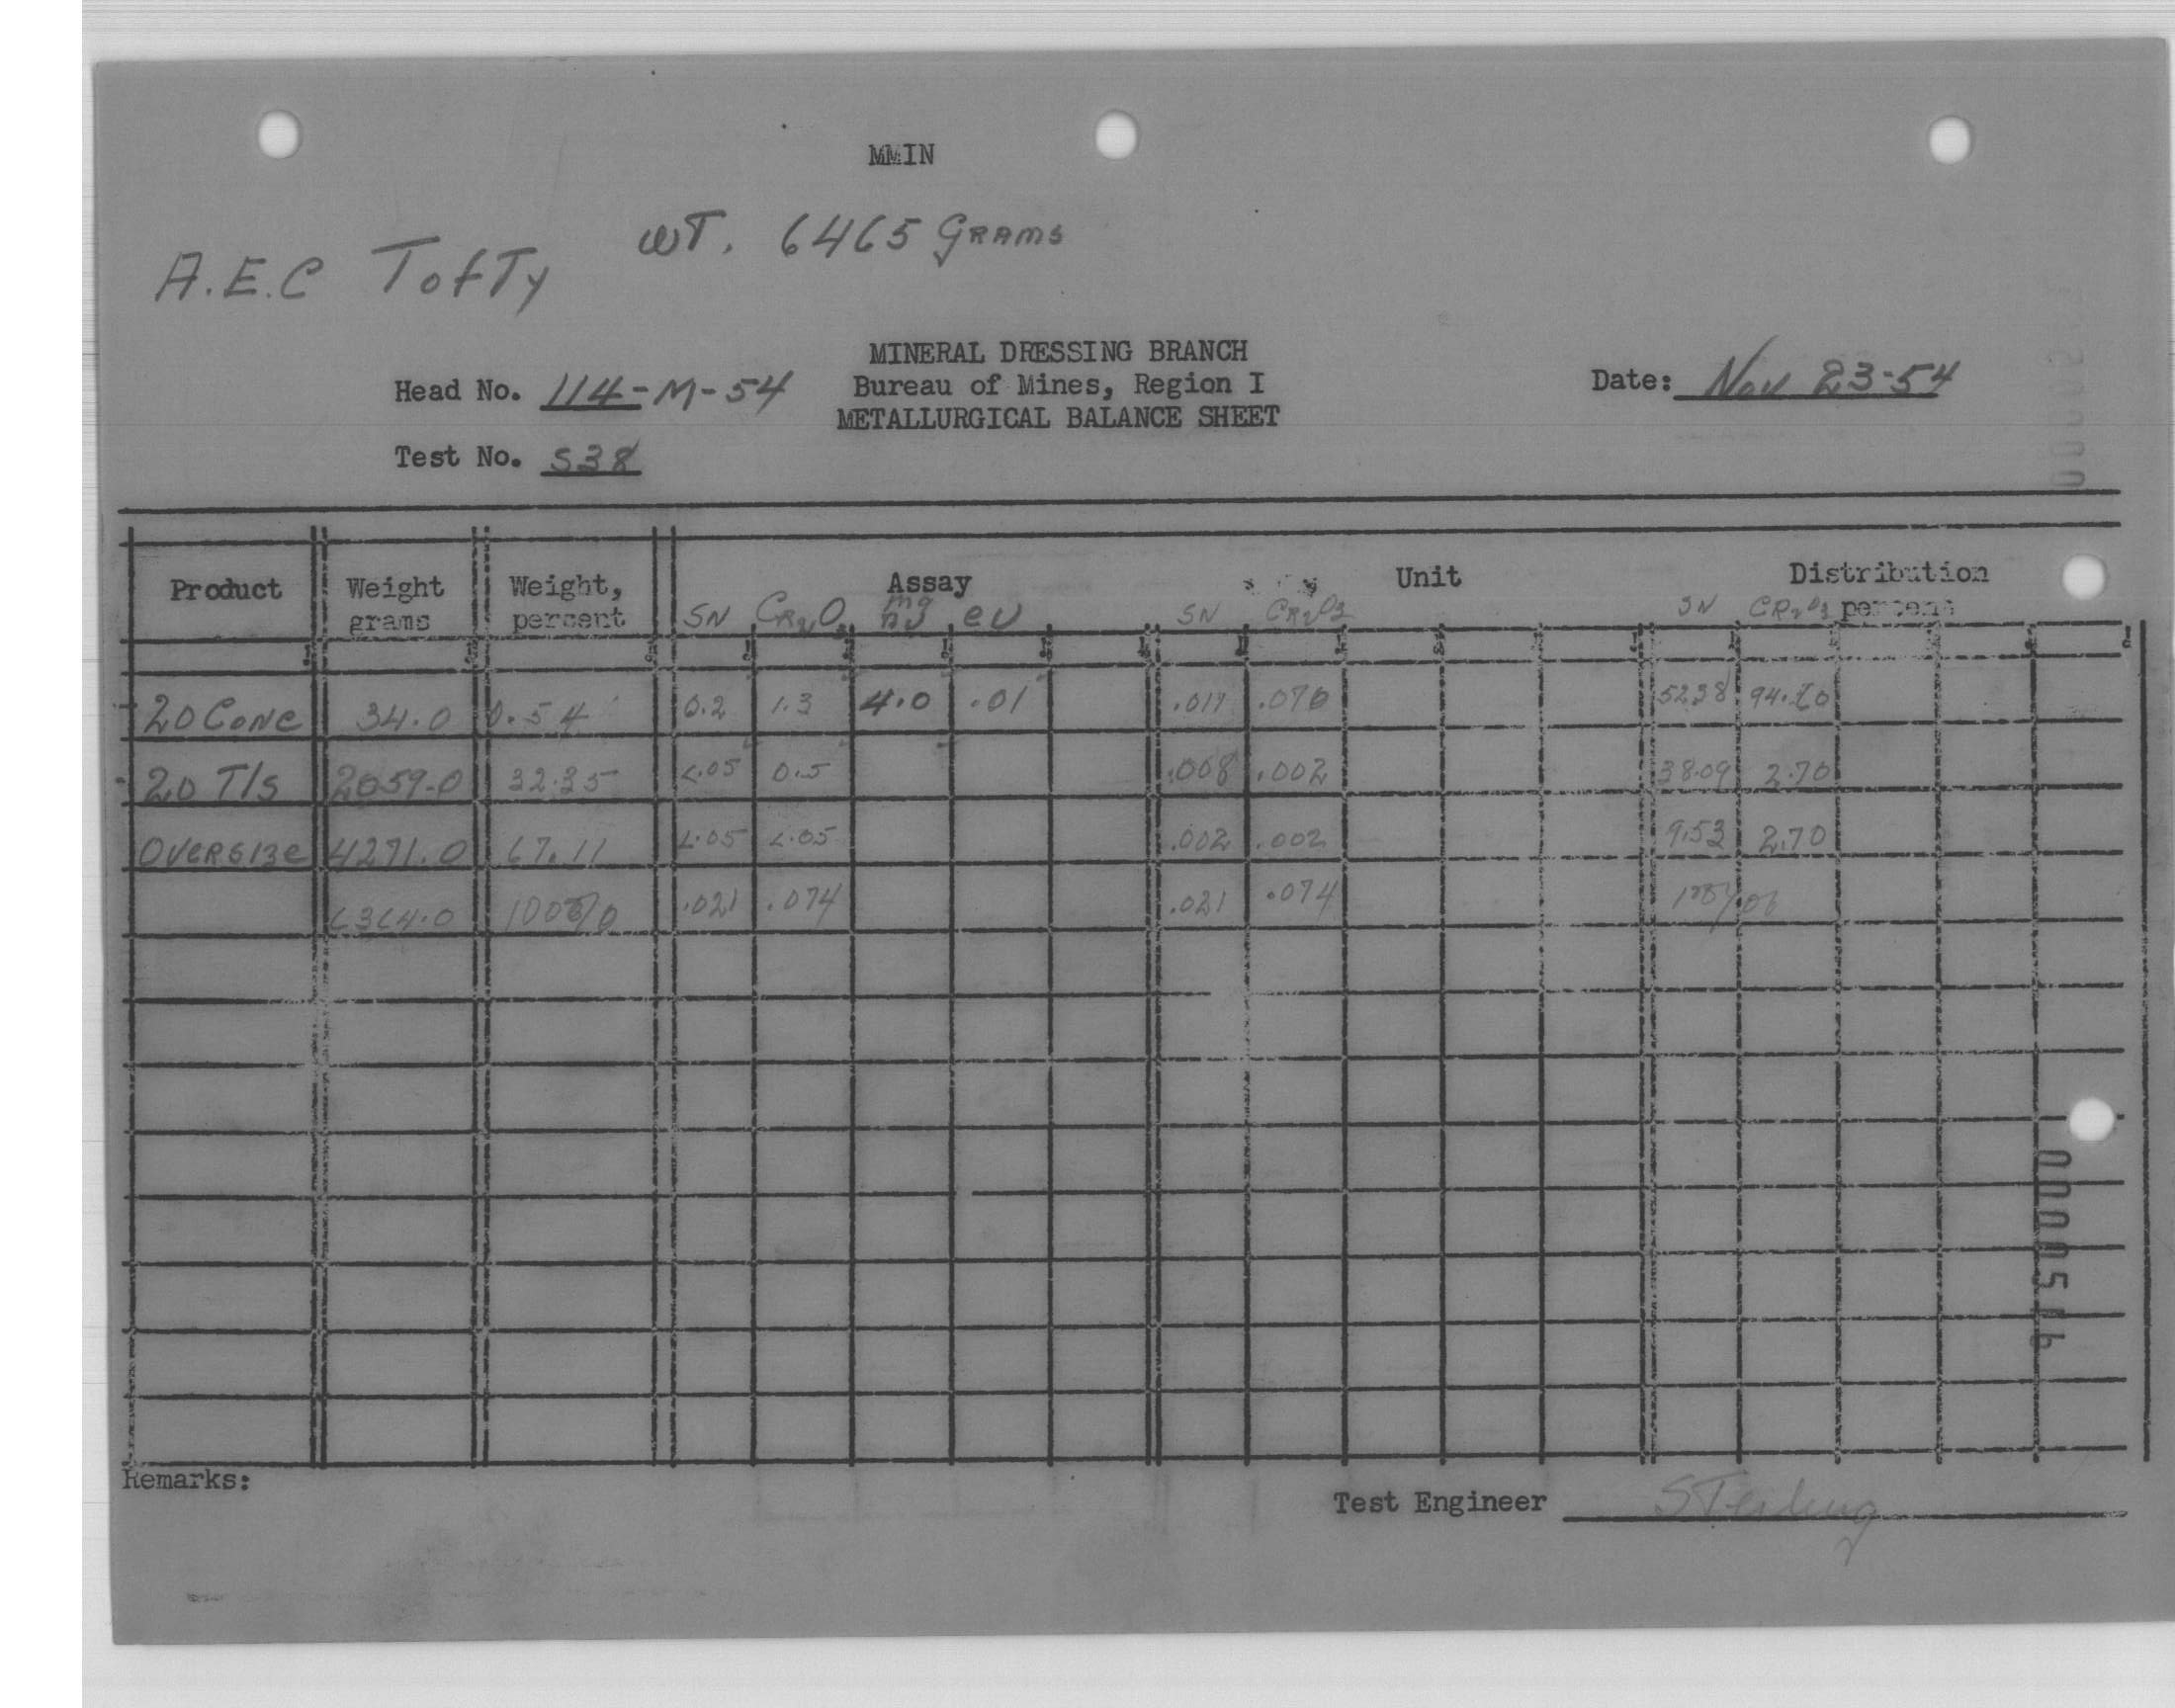 MMIN
A.E.C Tofty WT. 6465 GRAMS
MINERAL DRESSING BRANCH
Head No. 114-M-54 Bureau of Mines, Region I Date: Nov 23-54
METALLURGICAL BALANCE SHEET
Test No. S38
Product Weight grams Weight, percent Assay Unit Distribution percent
SN CR2O3 mg eU SN CR2O3 SN CR2O3
20 Conc 34.0 0.54 0.2 1.3 4.0 .01 .011 .070 52.38 94.60
20 T/s 2059.0 32.35 <.05 0.5 .008 .002 38.09 2.70
Oversize 4271.0 67.11 <.05 <.05 .002 .002 9.53 2.70
6364.0 100% .021 .074 .021 .074
Remarks:
Test Engineer Sterling